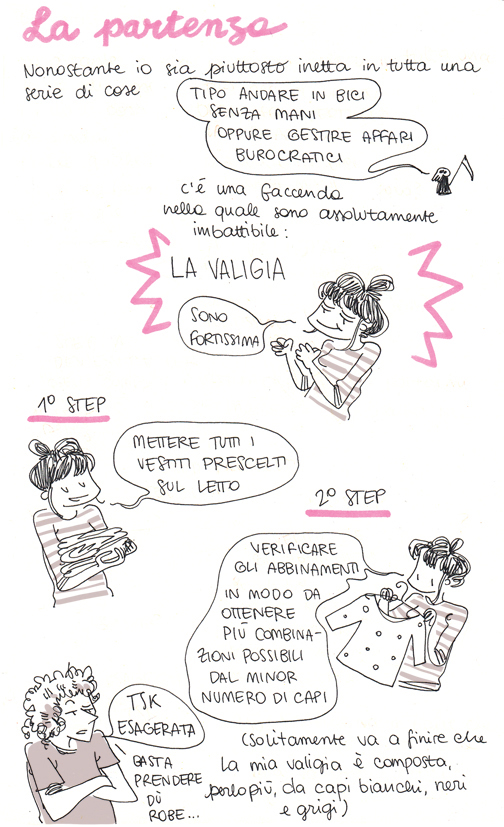 La partenza
Nonostante io sia piuttosto inetta in tutta una
serie di cose
TIPO ANDARE IN BICI
SENZA MANI
OPPURE GESTIRE AFFARI
BUROCRATICI
c'é una faccenda
nella quale sono assolutamente
imbattibile:
LA VALIGIA
SONO
FORTISSIMA
1º STEP
METTERE TUTTI I
VESTITI PRESCELTI
SUL LETTO
2º STEP
VERIFICARE
GLI ABBINAMENTI
IN MODO DA
OTTENERE
PIÙ COMBINA-
ZIONI POSSIBILI
DAL MINOR
NUMERO DI CAPI
TSK
ESAGERATA
BASTA
PRENDERE
DÙ
ROBE...
(Solitamente va a finire che
la mia valigia è composta,
perlopiù, da capi bianchi, neri
e grigi)